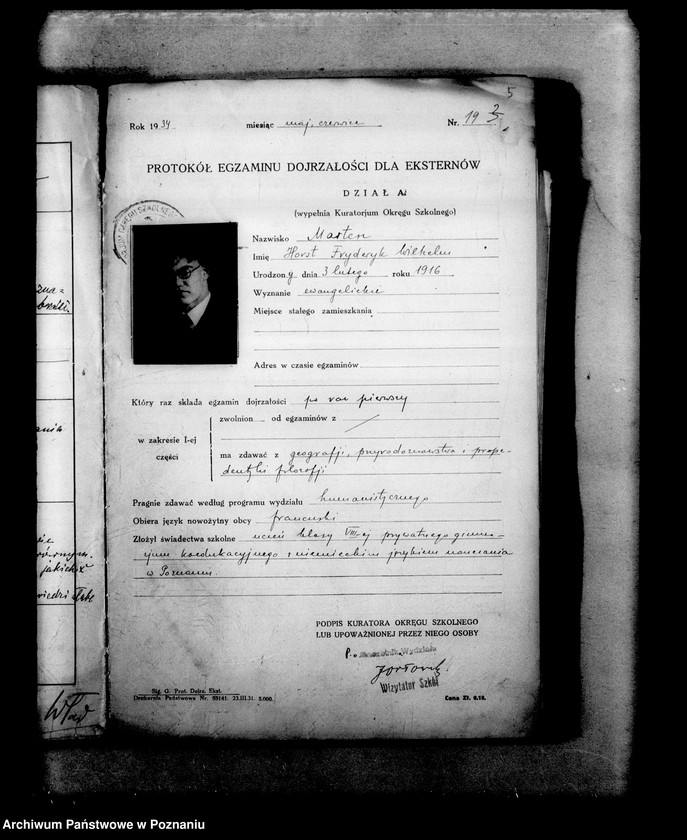 5
Rok 1934 miesiąc maj, czerwiec Nr. 19
PROTOKÓŁ EGZAMINU DOJRZAŁOŚCI DLA EKSTERNÓW
DZIAŁ A:
(wypełnia Kuratorjum Okręgu Szkolnego)
Nazwisko Marten
Imię Horst Fryderyk Wilhelm
Urodzony dnia 3 lutego roku 1916
Wyznanie ewangelickie
Miejsce stałego zamieszkania
Adres w czasie egzaminów
Który raz składa egzamin dojrzałości po raz pierwszy
zwolnion od egzaminów z
w zakresie I-ej
części
ma zdawać z geografji, przyrodoznawstwa i prope-
deutyki filozofji
Pragnie zdawać według programu wydziału humanistycznego
Obiera język nowożytny obcy francuski
Złożył świadectwa szkolne uczeń klasy VIII-ej prywatnego gimna-
zjum koedukacyjnego z niemieckim językiem nauczania
w Poznaniu.
PODPIS KURATORA OKRĘGU SZKOLNEGO
LUB UPOWAŻNIONEJ PRZEZ NIEGO OSOBY
Naczelnik Wydziału
Wizytator Szkół
Sig. G. Prot. Dojrz. Ekst.
Drukarnia Państwowa Nr. 53141. 23.III.31. 5.000.
Cena Zł. 0,15.
Archiwum Państwowe w Poznaniu